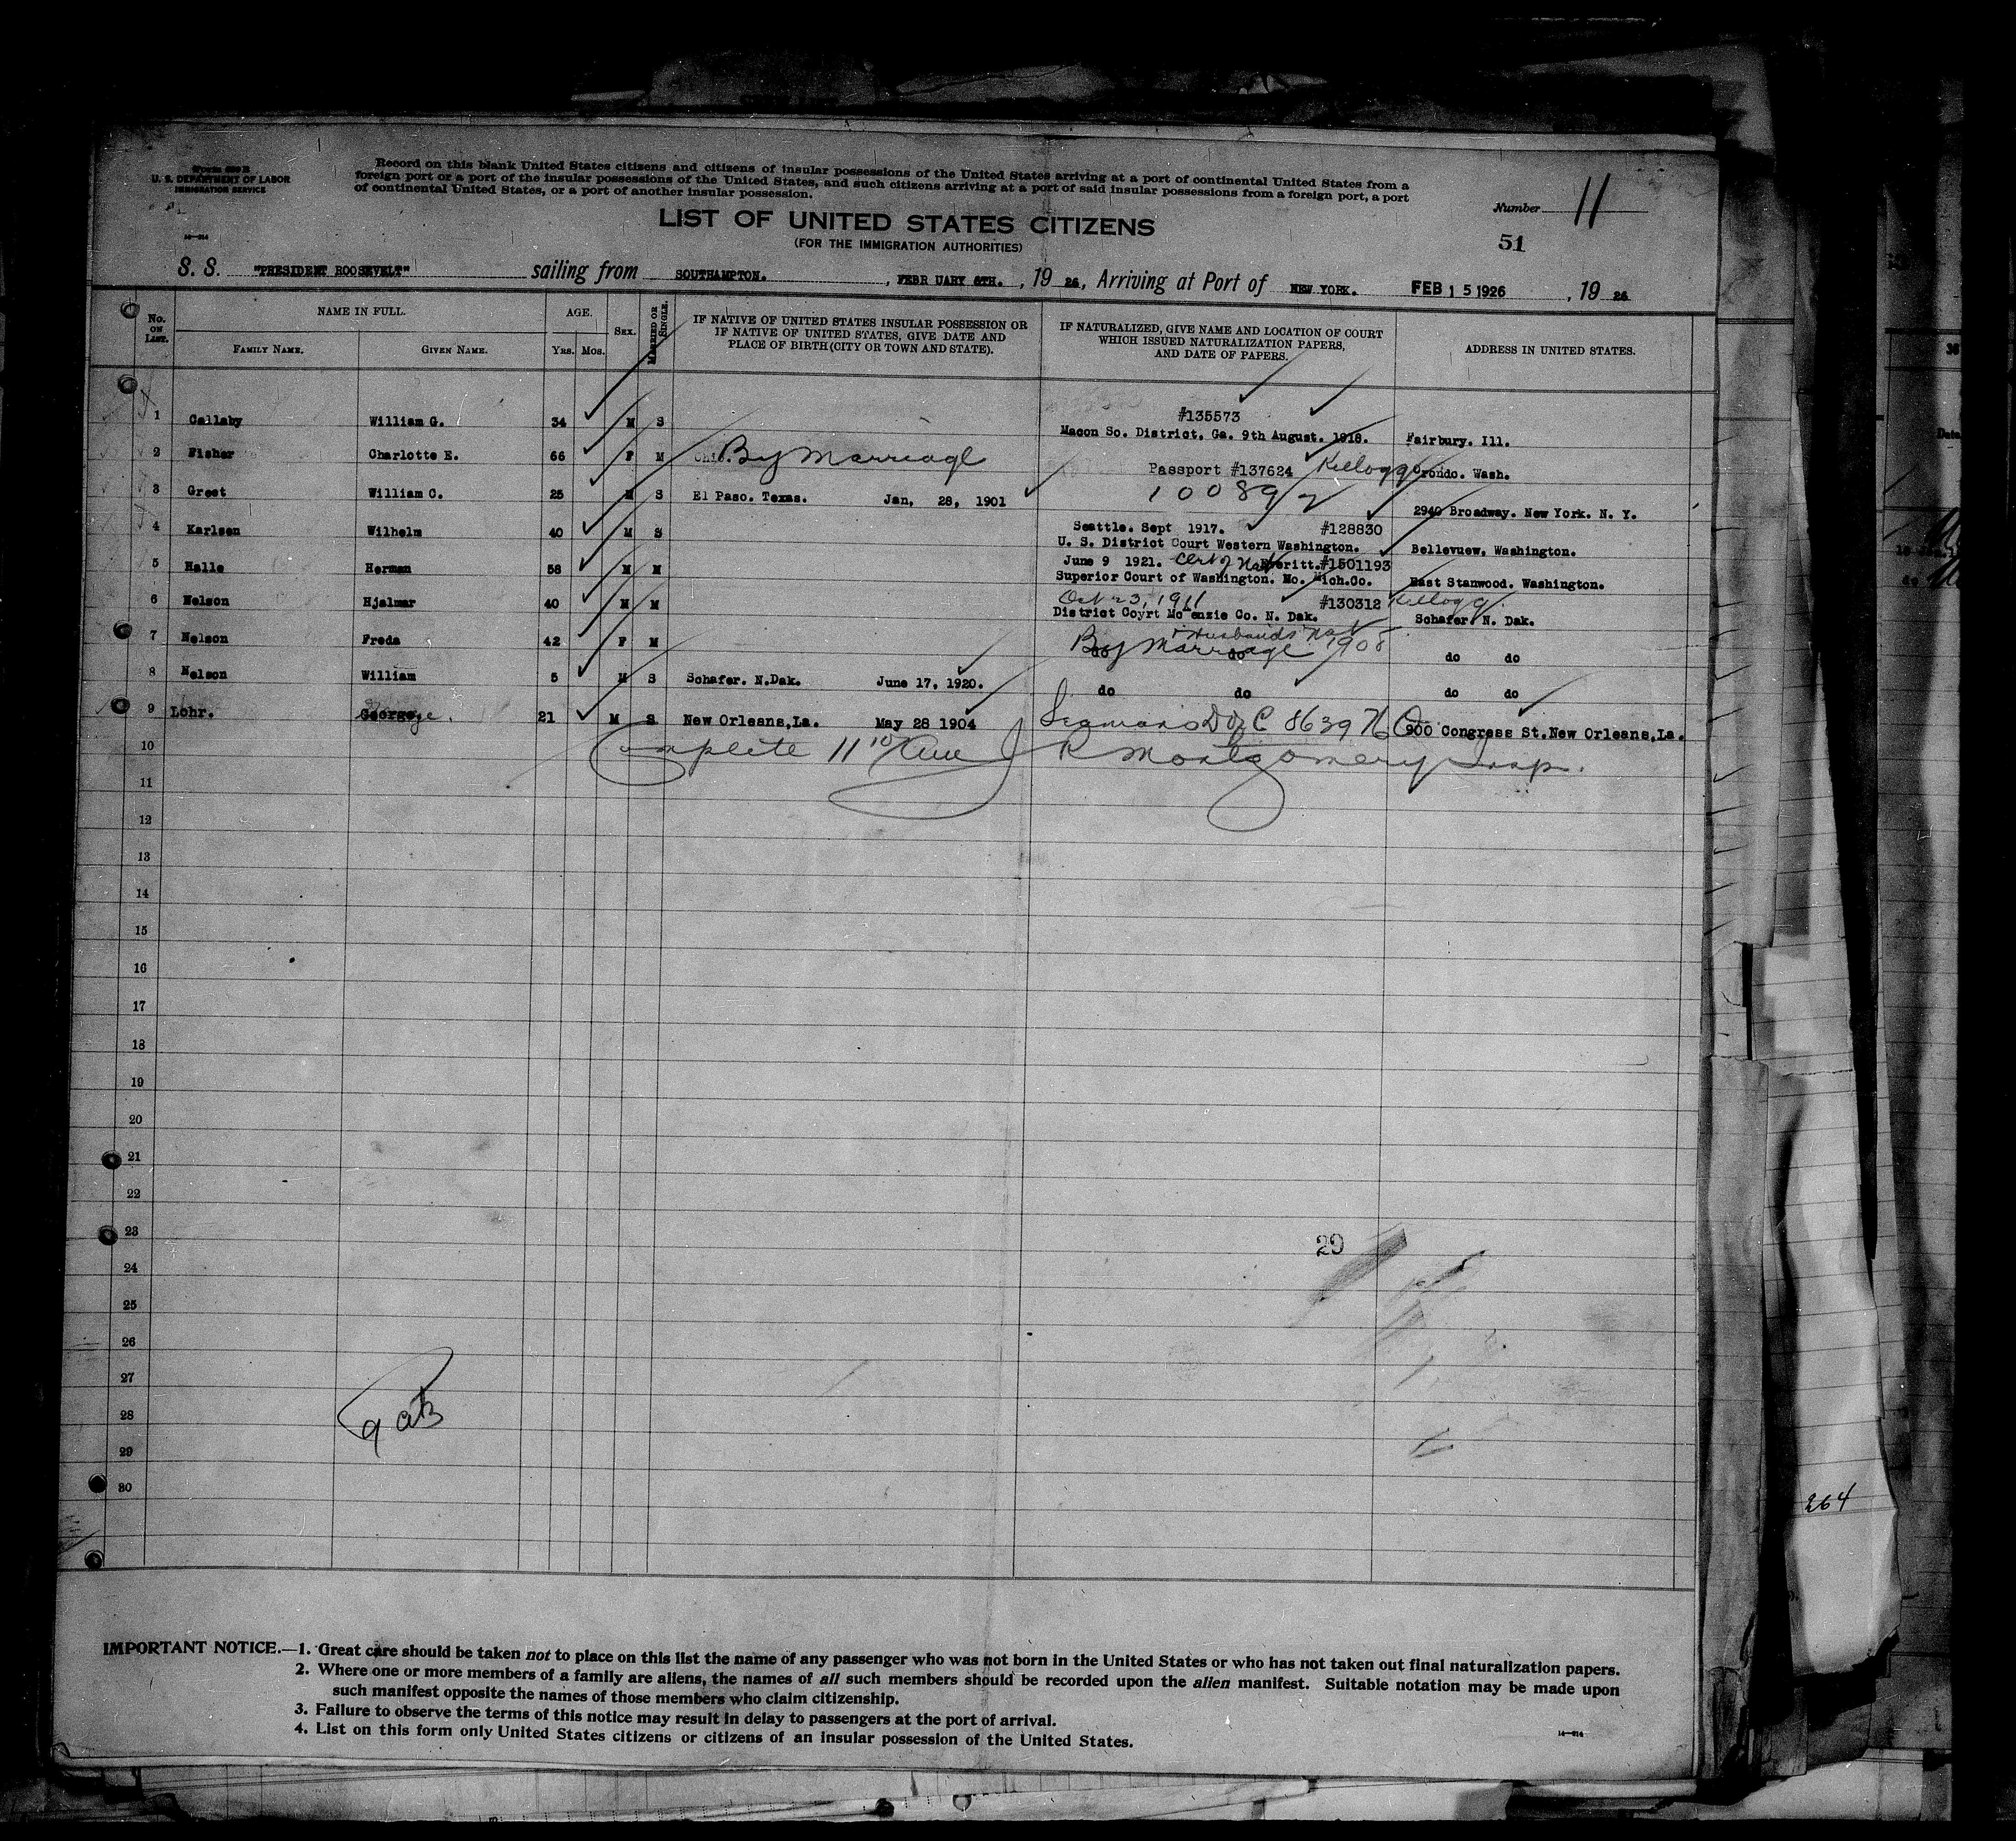 U. S. DEPARTMENT OF LABOR
IMMIGRATION SERVICE
Record on this blank United States citizens and citizens of insular possessions of the United States arriving at a port of continental United States from a
foreign port or a port of the insular possessions of the United States, and such citizens arriving at a port of said insular possessions from a foreign port, a port
of continental United States, or a port of another insular possession.
Number 11
LIST OF UNITED STATES CITIZENS
(FOR THE IMMIGRATION AUTHORITIES)
51
S. S. "PRESIDENT ROOSEVELT" sailing from SOUTHAMPTON. , FEBR UARY 6TH. , 19 26, Arriving at Port of NEW YORK. FEB 15 1926 , 19 26
No. ON LIST. NAME IN FULL. AGE. SEX. MARRIED OR SINGLE. IF NATIVE OF UNITED STATES INSULAR POSSESSION OR IF NATIVE OF UNITED STATES, GIVE DATE AND PLACE OF BIRTH (CITY OR TOWN AND STATE). IF NATURALIZED, GIVE NAME AND LOCATION OF COURT WHICH ISSUED NATURALIZATION PAPERS, AND DATE OF PAPERS. ADDRESS IN UNITED STATES.
FAMILY NAME. GIVEN NAME. YRS. MOS.
#135573
1 Callaby William G. 34 M S Macon So. District. Ga. 9th August. 1918. Fairbury. Ill.
2 Fisher Charlotte E. 66 F M By Marriage Passport #137624 Kellogg Orondo. Wash.
3 Greet William C. 25 M S El Paso. Texas. Jan, 28, 1901 100892 2940 Broadway. New York. N. Y.
Seattle. Sept 1917. #128830
4 Karlsen Wilhelm 40 M S U. S. District Court Western Washington. Bellevuew. Washington.
June 9 1921. Cert of Nat Everitt.#1501193
5 Halle Herman 58 M M Superior Court of Washington. Mo. Mich.Co. East Stanwood. Washington.
Oct 23, 1911 #130312 Kellogg
6 Nelson Hjalmar 40 M M District Coyrt McKenzie Co. N. Dak. Schafer. N. Dak.
Husbands Nat
7 Nelson Freda 42 F M By Marriage 1908 do do do do
8 Nelson William 5 M S Schafer. N.Dak. June 17, 1920. do do do do
9 Lohr. George. 21 M S New Orleans,La. May 28 1904 Seamans 863976 900 Congress St.New Orleans,La.
10 Complete 11 R Montgomery Insp.
11
12
13
14
15
16
17
18
19
20
21
22
23
29
24
25
26
27
28
29
30
264
IMPORTANT NOTICE.—1. Great care should be taken not to place on this list the name of any passenger who was not born in the United States or who has not taken out final naturalization papers.
2. Where one or more members of a family are aliens, the names of all such members should be recorded upon the alien manifest. Suitable notation may be made upon
such manifest opposite the names of those members who claim citizenship.
3. Failure to observe the terms of this notice may result in delay to passengers at the port of arrival.
4. List on this form only United States citizens or citizens of an insular possession of the United States.